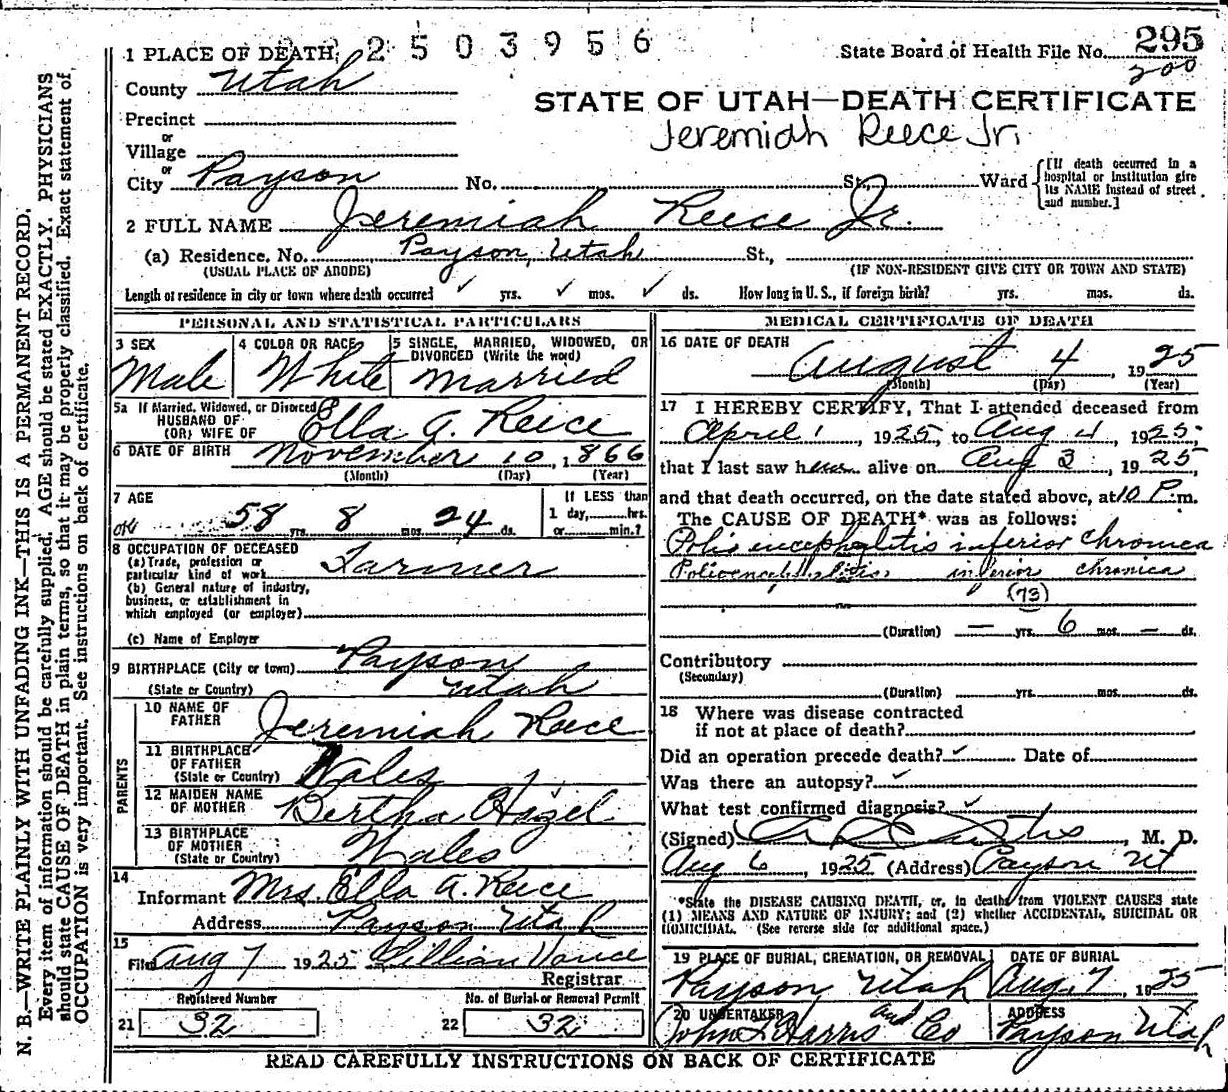 2 2 5 0 3 9 5 6
1 PLACE OF DEATH
State Board of Health File No. 295
200
County Utah
STATE OF UTAH—DEATH CERTIFICATE
Jeremiah Reece Jr.
Precinct
or
Village
or
City Payson No. St., Ward
[If death occurred in a
hospital or institution give
its NAME instead of street
and number.]
2 FULL NAME Jeremiah Reece Jr.
(a) Residence, No. Payson, Utah St.,
(USUAL PLACE OF ABODE) (IF NON-RESIDENT GIVE CITY OR TOWN AND STATE)
Length of residence in city or town where death occurred ✓ yrs. ✓ mos. ✓ ds. How long in U. S., if foreign birth? yrs. mos. ds.
PERSONAL AND STATISTICAL PARTICULARS
3 SEX
Male
4 COLOR OR RACE
White
5 SINGLE, MARRIED, WIDOWED, OR
DIVORCED (Write the word)
Married
5a If Married, Widowed, or Divorced
HUSBAND OF
(OR) WIFE OF
Ella A. Reece
6 DATE OF BIRTH November 10, 1866
(Month) (Day) (Year)
7 AGE
58 yrs. 8 mos. 24 ds.
If LESS than
1 day, hrs.
or min.?
8 OCCUPATION OF DECEASED
(a) Trade, profession or
particular kind of work Farmer
(b) General nature of industry,
business, or establishment in
which employed (or employer)
(c) Name of Employer
9 BIRTHPLACE (City or town) Payson
(State or Country) Utah
PARENTS
10 NAME OF
FATHER Jeremiah Reece
11 BIRTHPLACE
OF FATHER
(State or Country) Wales
12 MAIDEN NAME
OF MOTHER Bertha Hazel
13 BIRTHPLACE
OF MOTHER
(State or Country) Wales
14
Informant Mrs. Ella A. Reece
Address Payson Utah
15
Filed Aug 7 1925 Lillian Vance
Registrar
Registered Number
21 32
No. of Burial or Removal Permit
22 32
MEDICAL CERTIFICATE OF DEATH
16 DATE OF DEATH
August 4 1925
(Month) (Day) (Year)
17 I HEREBY CERTIFY, That I attended deceased from
April 1, 1925, to Aug 4, 1925
that I last saw h alive on Aug 3, 1925
and that death occurred, on the date stated above, at 10 P.m.
The CAUSE OF DEATH* was as follows:
Polioencephalitis inferior chronica
Polioencephalitis inferior chronica
(73)
(Duration) — yrs. 6 mos. — ds.
Contributory
(Secondary)
(Duration) yrs. mos. ds.
18 Where was disease contracted
if not at place of death?
Did an operation precede death? ✓ Date of
Was there an autopsy? ✓
What test confirmed diagnosis? ✓
(Signed) Curtis, M. D.
Aug 6, 1925 (Address) Payson Ut
*State the DISEASE CAUSING DEATH, or, in deaths from VIOLENT CAUSES state
(1) MEANS AND NATURE OF INJURY; and (2) whether ACCIDENTAL, SUICIDAL OR
HOMICIDAL. (See reverse side for additional space.)
19 PLACE OF BURIAL, CREMATION, OR REMOVAL
Payson Utah
DATE OF BURIAL
Aug. 7, 1925
20 UNDERTAKER
John Harris and Co
ADDRESS
Payson Utah
READ CAREFULLY INSTRUCTIONS ON BACK OF CERTIFICATE
N. B.—WRITE PLAINLY WITH UNFADING INK—THIS IS A PERMANENT RECORD.
Every item of information should be carefully supplied. AGE should be stated EXACTLY. PHYSICIANS
should state CAUSE OF DEATH in plain terms, so that it may be properly classified. Exact statement of
OCCUPATION is very important. See instructions on back of certificate.